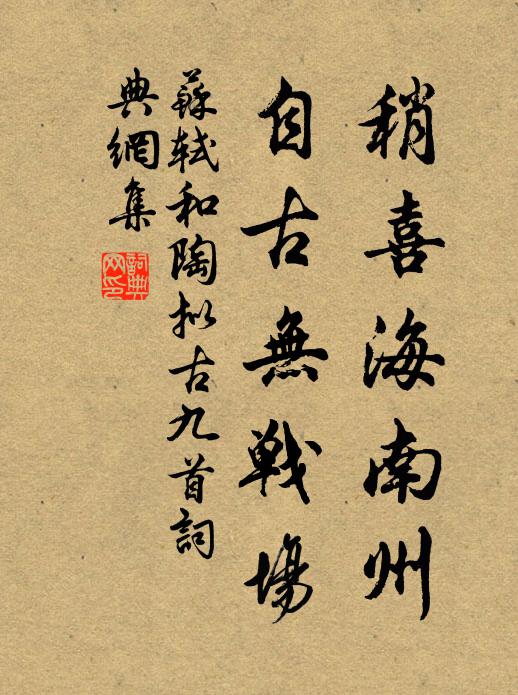 稍喜海南州
自古無戰場
蘇軾和陶擬古九首詞
典網集
詞典
网印